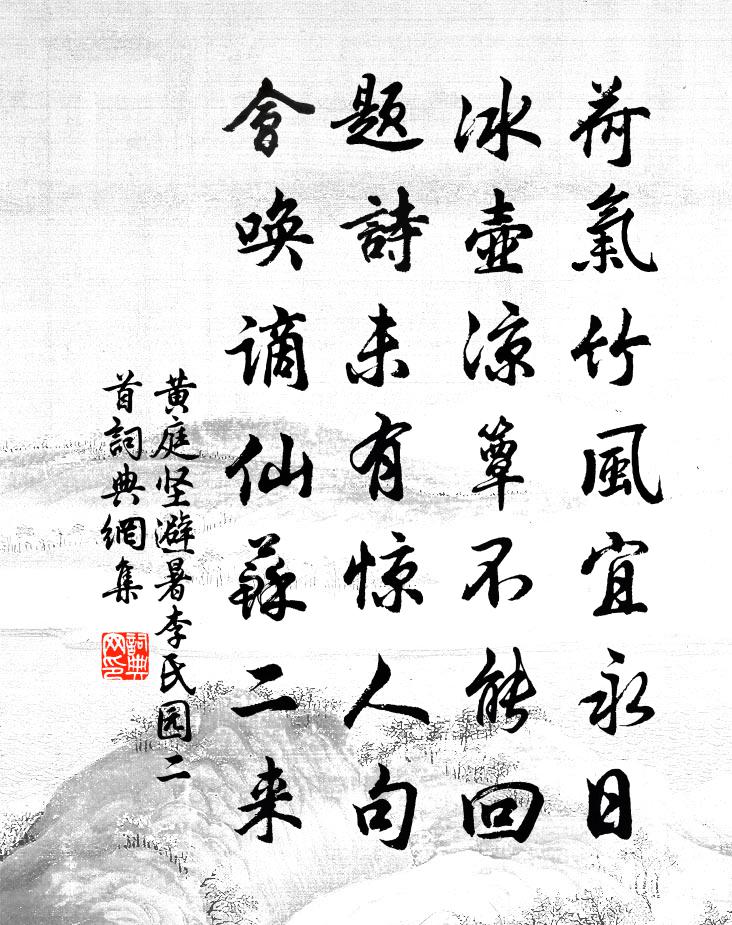 荷氣竹風宜永日
冰壺凉簟不能回
题詩未有惊人句
會唤谪仙蘇二来
黄庭坚避暑李氏园二
首詞典網集
詞典网印